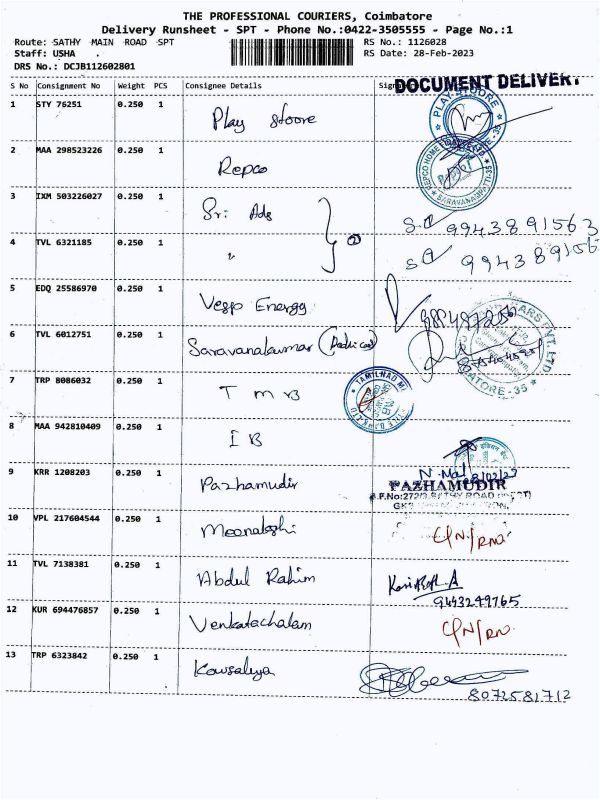 THE PROFESSIONAL COURIERS, Coimbatore
Delivery Runsheet - SPT - Phone No.:0422-3505555 - Page No.:1
Route: SATHY MAIN ROAD SPT RS No.: 1126028
Staff: USHA . RS Date: 28-Feb-2023
DRS No.: DCJB112602801
DOCUMENT DELIVERY
S No Consignment No Weight PCS Consignee Details
1 STY 76251 0.250 1 Play stoore
PLAY STOORE
2 MAA 298523226 0.250 1 Repco
REPCO HOME
SARAVANAMPATTI-35
3 IXM 503226027 0.250 1 Sri Ads 9943891563
4 TVL 6321185 0.250 1 " 994389156
5 EDQ 25586970 0.250 1 Vegp Energy
6 TVL 6012751 0.250 1 Saravanakumar
7 TRP 8086032 0.250 1 TMB
TAMILNAD
8 MAA 942810409 0.250 1 IB
9 KRR 1208203 0.250 1 Pazhamudir
PAZHAMUDIR
10 VPL 217604544 0.250 1 Meenakshi
11 TVL 7138381 0.250 1 Abdul Rahim
9443249765
12 KUR 694476857 0.250 1 Venkatachalam
13 TRP 6323842 0.250 1 Kowsalya
8072581712